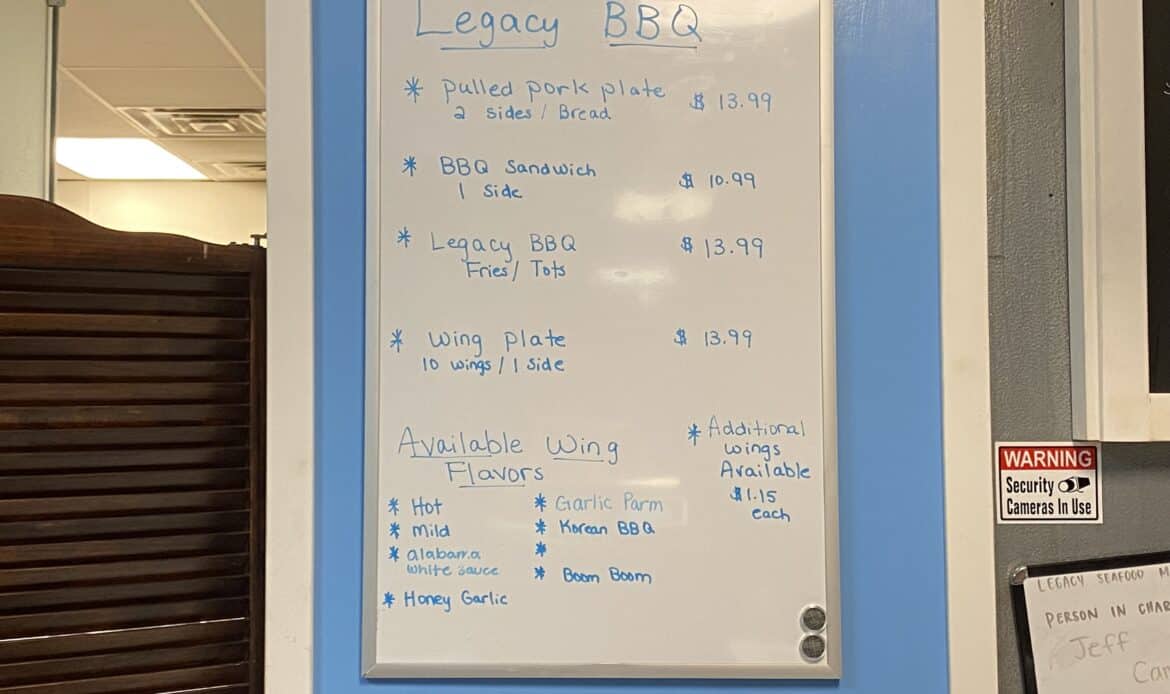 Legacy BBQ
* pulled pork plate $ 13.99
2 sides / Bread
* BBQ Sandwich $ 10.99
1 Side
* Legacy BBQ $ 13.99
Fries / Tots
* Wing plate $ 13.99
10 wings / 1 Side
Available Wing
Flavors
* Hot
* Mild
* alabama
white sauce
* Honey Garlic
* Garlic Parm
* Korean BBQ
*
* Boom Boom
* Additional
wings
Available
$1.15
each
WARNING
Security
Cameras In Use
LEGACY SEAFOOD
PERSON IN
Jeff